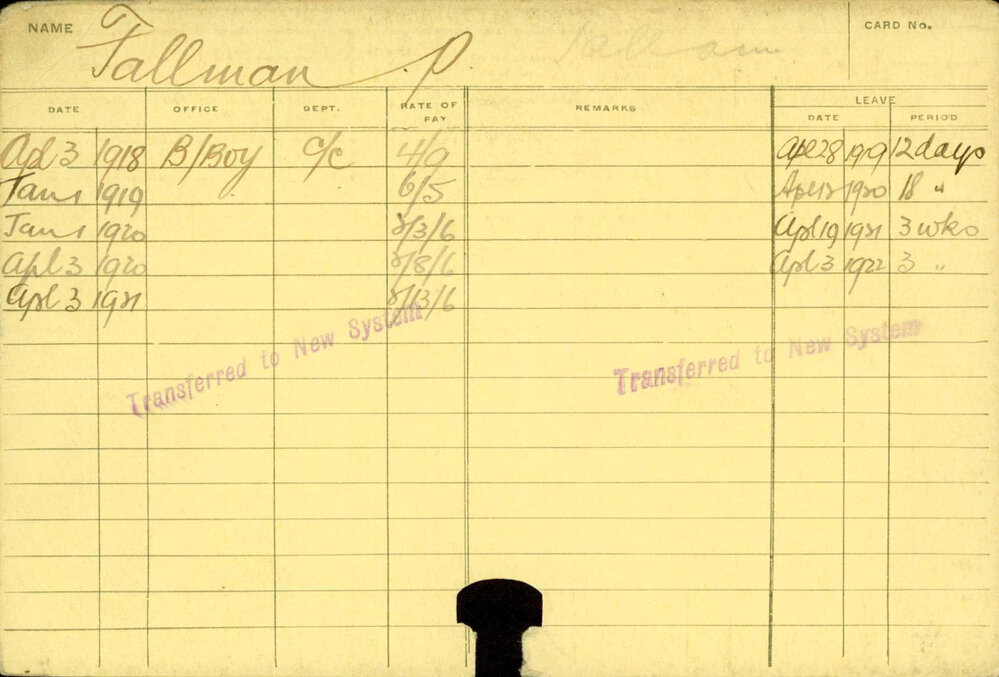 NAME Tallman P. CARD No.
DATE OFFICE DEPT. RATE OF PAY REMARKS LEAVE DATE PERIOD
Apl 3 1918 B/Boy C/C 4/9 Apl 28 1919 12 days
Jan 1 1919 6/5 Apl 12 1920 18 "
Jan 1 1920 /3/6 Apl 19 1921 3 wks
Apl 3 1920 /8/6 Apl 3 1922 3 "
Apl 3 1921 /13/6
Transferred to New System
Transferred to New System